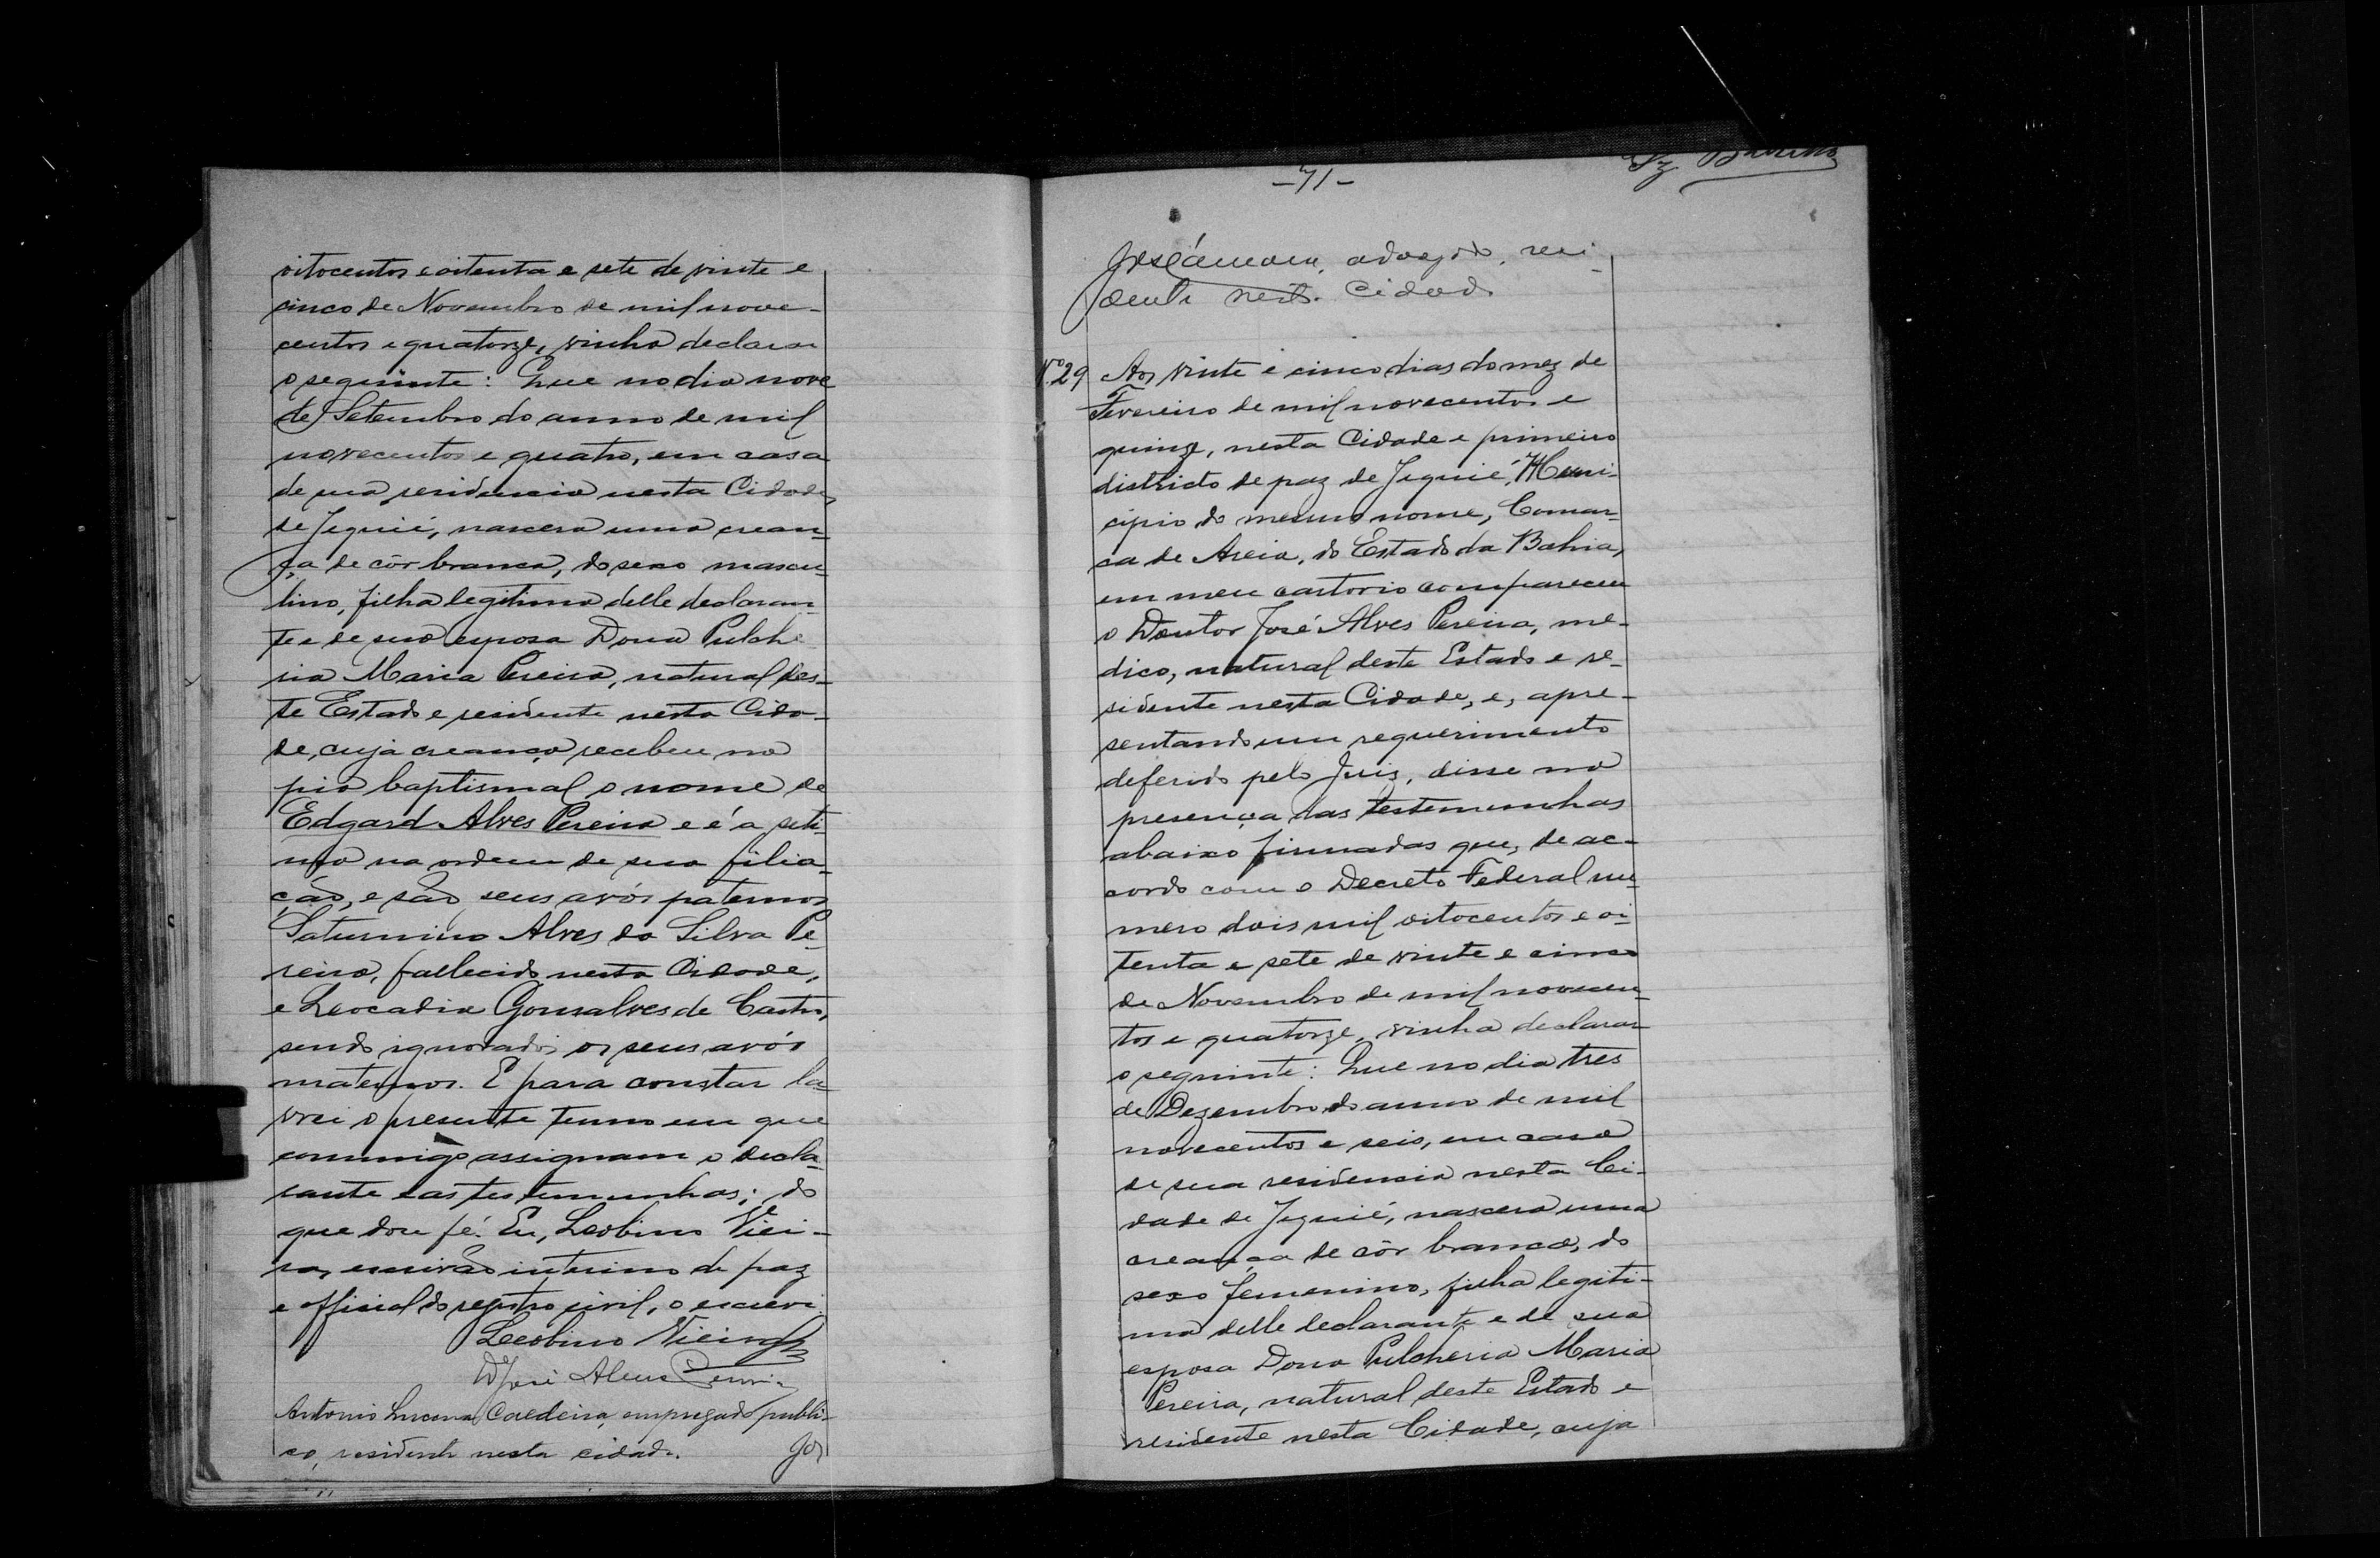 oitocentos e oitenta e sete de vinte e
cinco de Novembro de mil nove-
centos e quatorze, vinha declarar
o seguinte: Que no dia nove
de Setembro do anno de mil
novecentos e quatro, em casa
de sua residencia nesta Cidade
de Jequié, nascera uma crean-
ça de côr branca, do sexo mascu-
lino, filha legitima delle declaran-
te e de sua esposa Dona Pulche
ria Maria Pereira, natural des-
te Estado e residente nesta Cida-
de, cuja creança recebeu na
pia baptismal o nome de
Edgard Alves Pereira e é a seti-
ma na ordem de sua filia-
ção, e são seus avós paternos
Saturnino Alves da Silva Pe-
reira, fallecido nesta Cidade,
e Leocadia Gonsalves de Castro,
sendo ignorados os seus avós
maternos. E para constar la-
vrei o presente termo em que
commigo assignam o decla-
rante e as testemunhas; do
que dou fé. Eu, Leobino Viei-
ra, escrivão interino de paz
e official do registro civil, o escrevi.
Leobino Vieira
Dr José Alves Pereira
Antonio Lucena Caldeira, empregado publi-
co, residente nesta cidade.
Jos
-71-
José advogado, resi-
dente nesta Cidade
Nº 29 Aos vinte e cinco dias do mez de
Fevereiro de mil novecentos e
quinze, nesta Cidade e primeiro
districto de paz de Jequié, Muni-
cipio do mesmo nome, Comar-
ca de Areia, do Estado da Bahia,
em meu cartorio compareceu
o Doutor José Alves Pereira, me-
dico, natural deste Estado e re-
sidente nesta Cidade, e, apre-
sentando um requerimento
deferido pelo Juiz, disse na
presença das testemunhas
abaixo firmadas que, de ac-
cordo com o Decreto Federal nu-
mero dois mil oitocentos e oi-
tenta e sete de vinte e cinco
de Novembro de mil novecen-
tos e quatorze, vinha declarar
o seguinte: Que no dia tres
de Dezembro do anno de mil
novecentos e seis, em casa
de sua residencia nesta Ci-
dade de Jequié, nascera uma
creança de côr branca, do
sexo femenino, filha legiti-
ma delle declarante e de sua
esposa Dona Pulcheria Maria
Pereira, natural deste Estado e
residente nesta Cidade, cuja